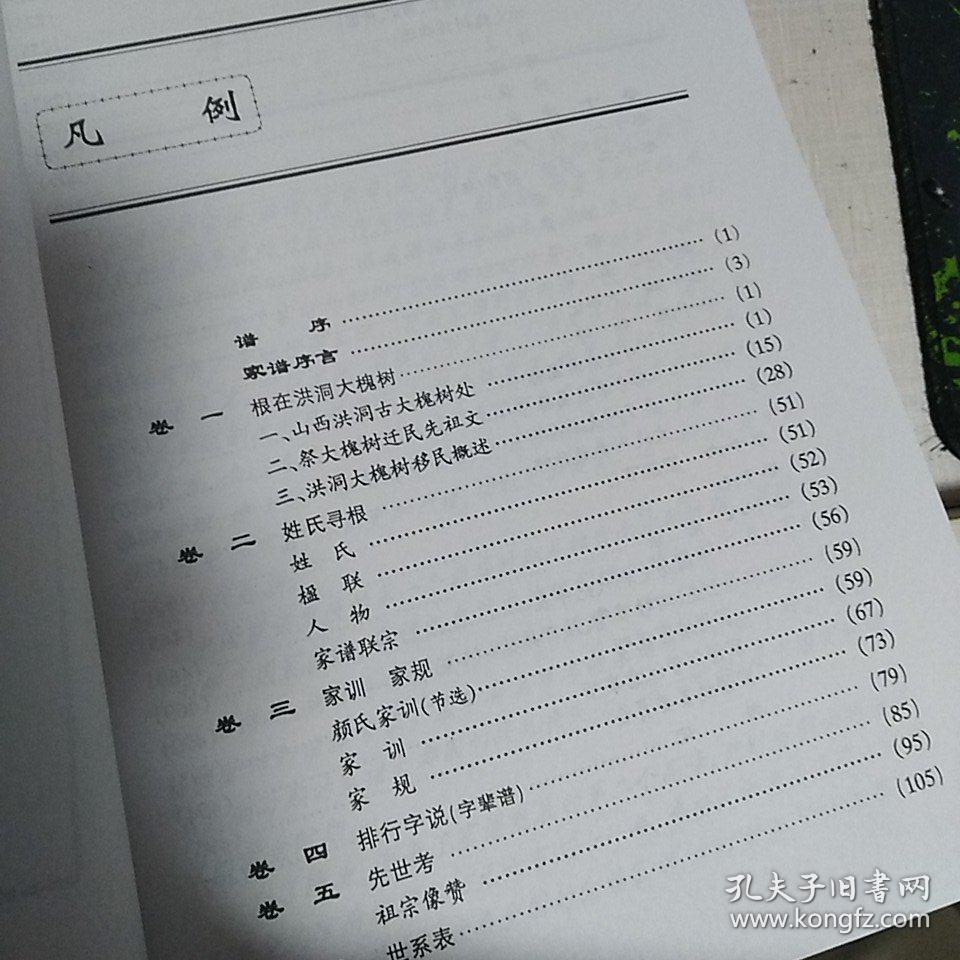 凡 例
谱 序 (1)
家谱序言 (3)
卷 一 根在洪洞大槐树 (1)
一、山西洪洞古大槐树处 (1)
二、祭大槐树迁民先祖文 (15)
三、洪洞大槐树移民概述 (28)
卷 二 姓氏寻根 (51)
姓 氏 (51)
楹 联 (52)
人 物 (53)
家谱联宗 (56)
卷 三 家训 家规 (59)
颜氏家训(节选) (59)
家 训 (67)
家 规 (73)
卷 四 排行字说(字辈谱) (79)
卷 五 先世考 (85)
祖宗像赞 (95)
世系表 (105)
孔夫子旧書网
www.kongfz.com